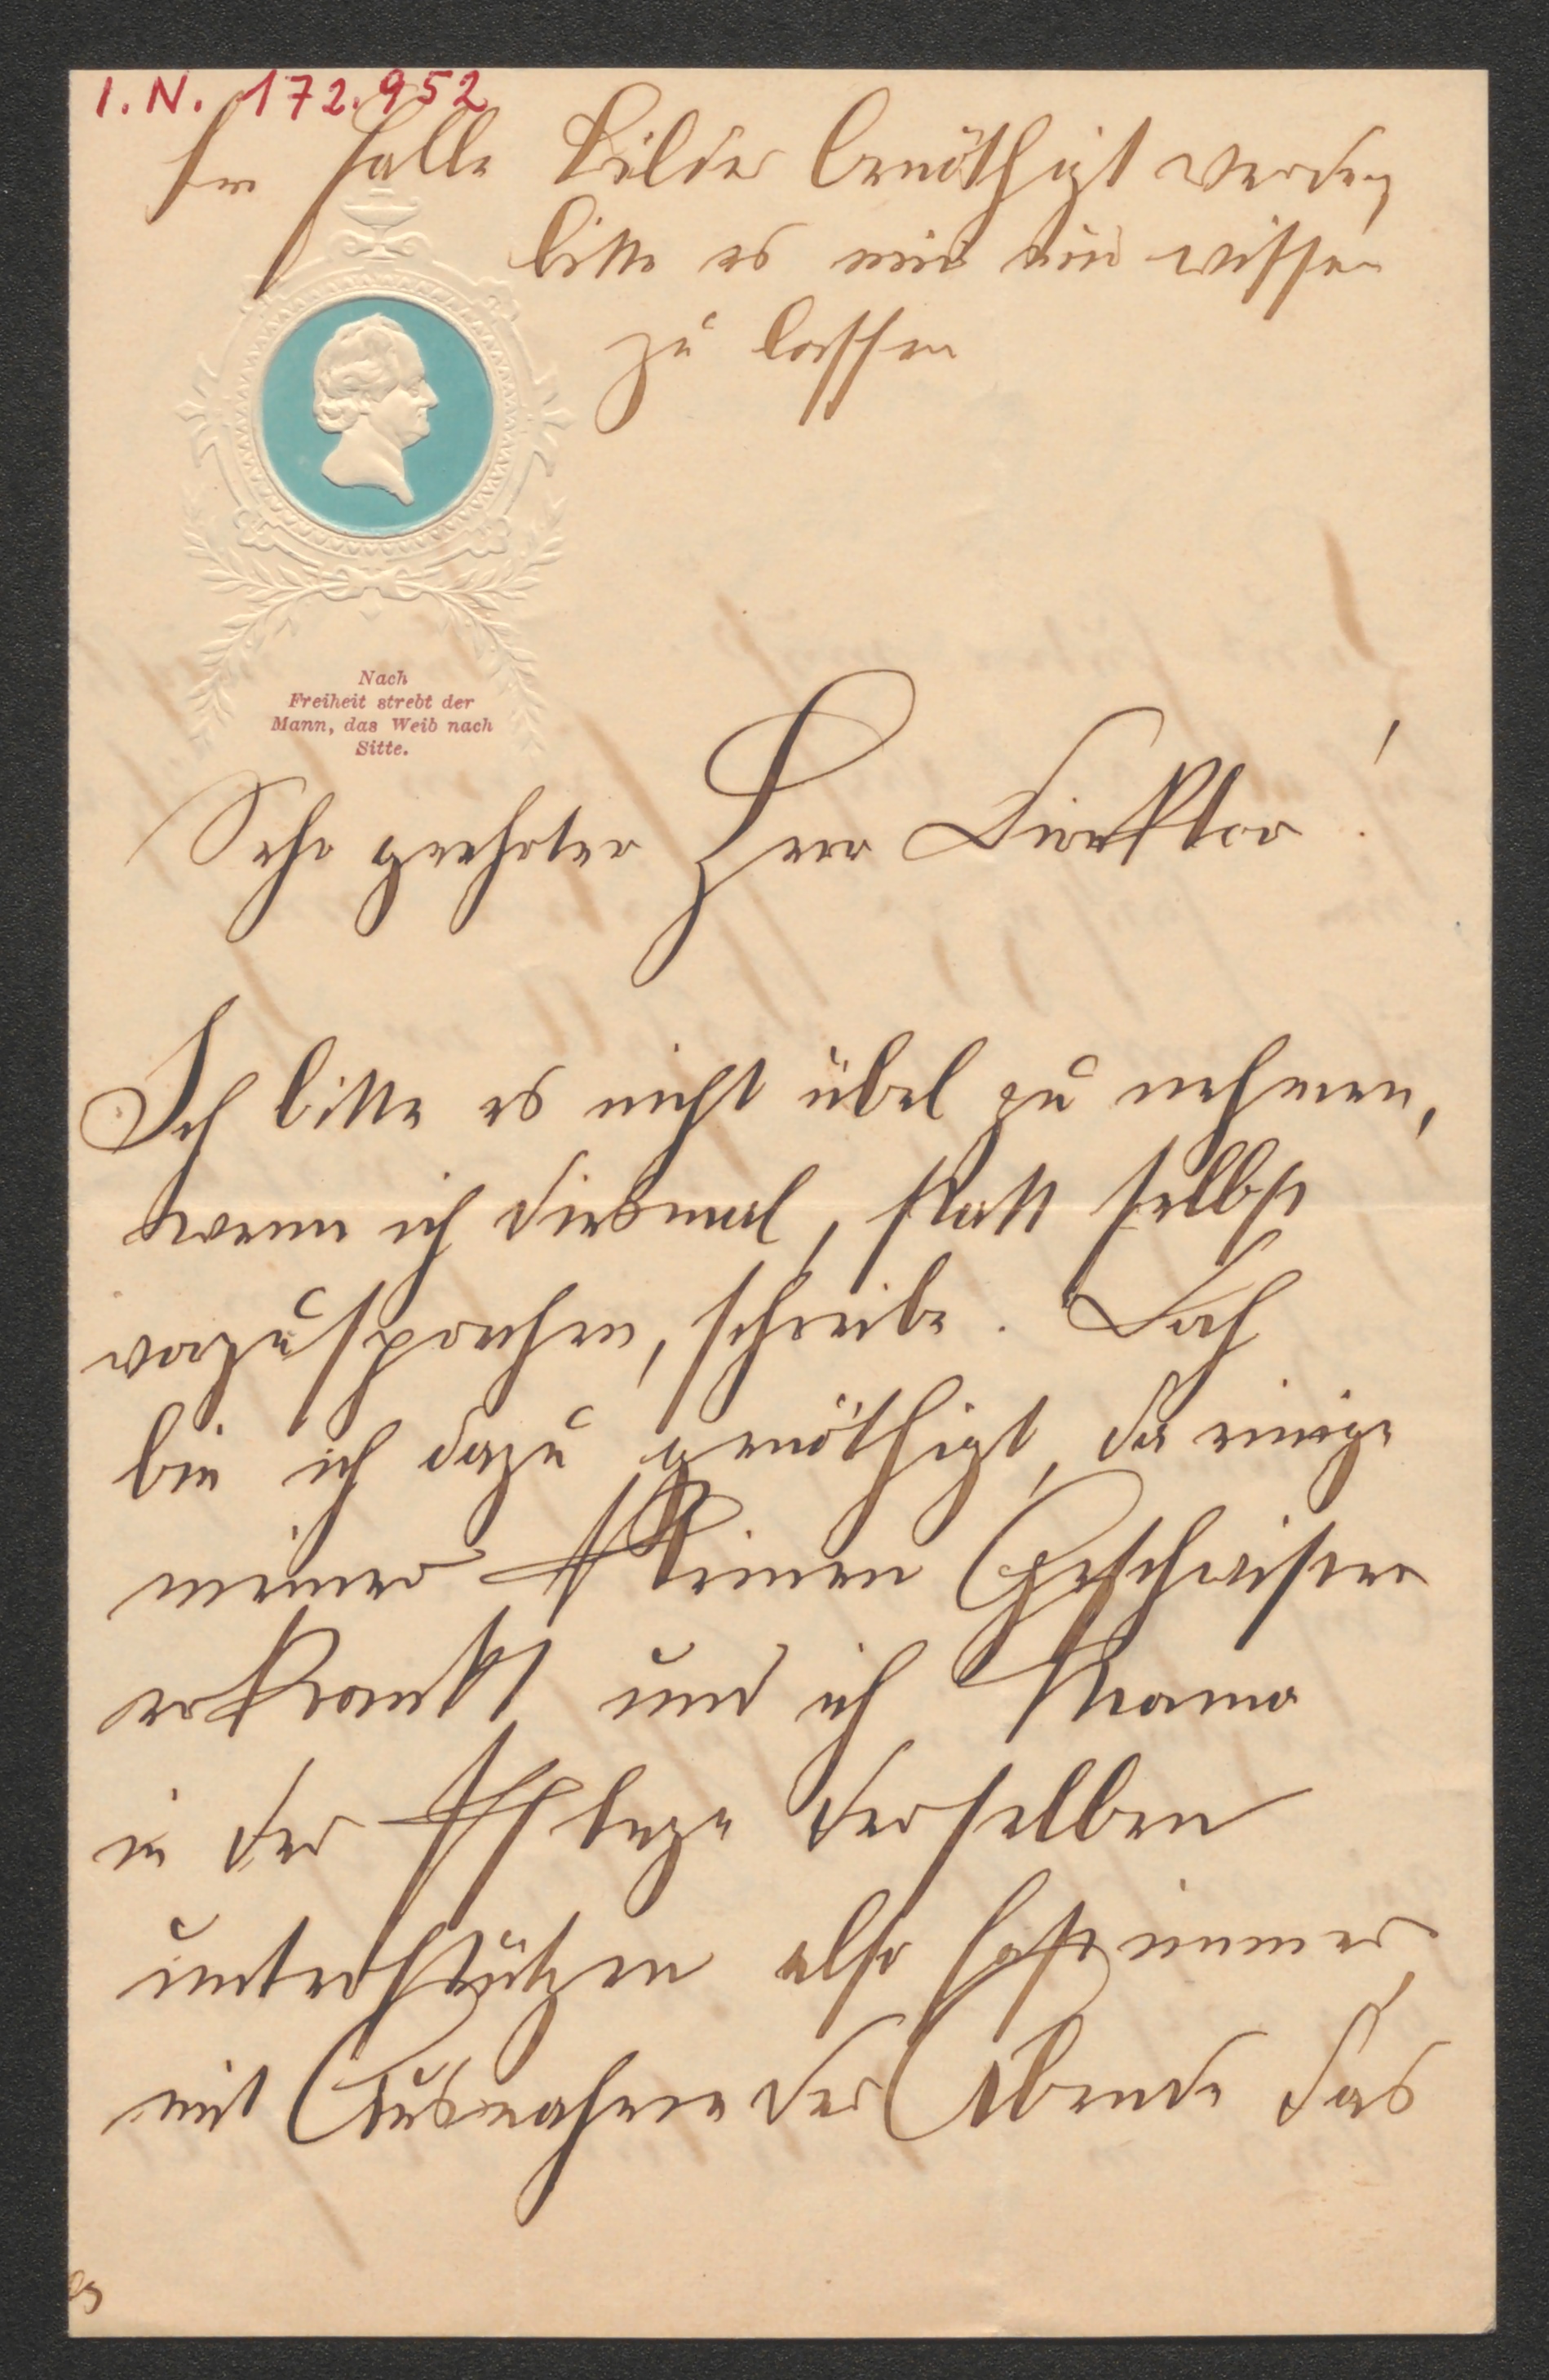 I.N. 172.952
Im Falle Bilder benöthigt werden
bitte es mir nur wissen
zu lassen
Nach
Freiheit strebt der
Mann, das Weib nach
Sitte.
Sehr geehrter Herr Direktor!
Ich bitte es nicht übel zu nehmen,
wenn ich diesmal, statt selbst
vorzusprechen, schreibe. Doch
bin ich dazu genöthigt, da einige
meiner kleinen Geschwister
erkrankt und ich Mama
in der Pflege derselben
unterstützen also fast immer,
mit Ausnahme der Abende das